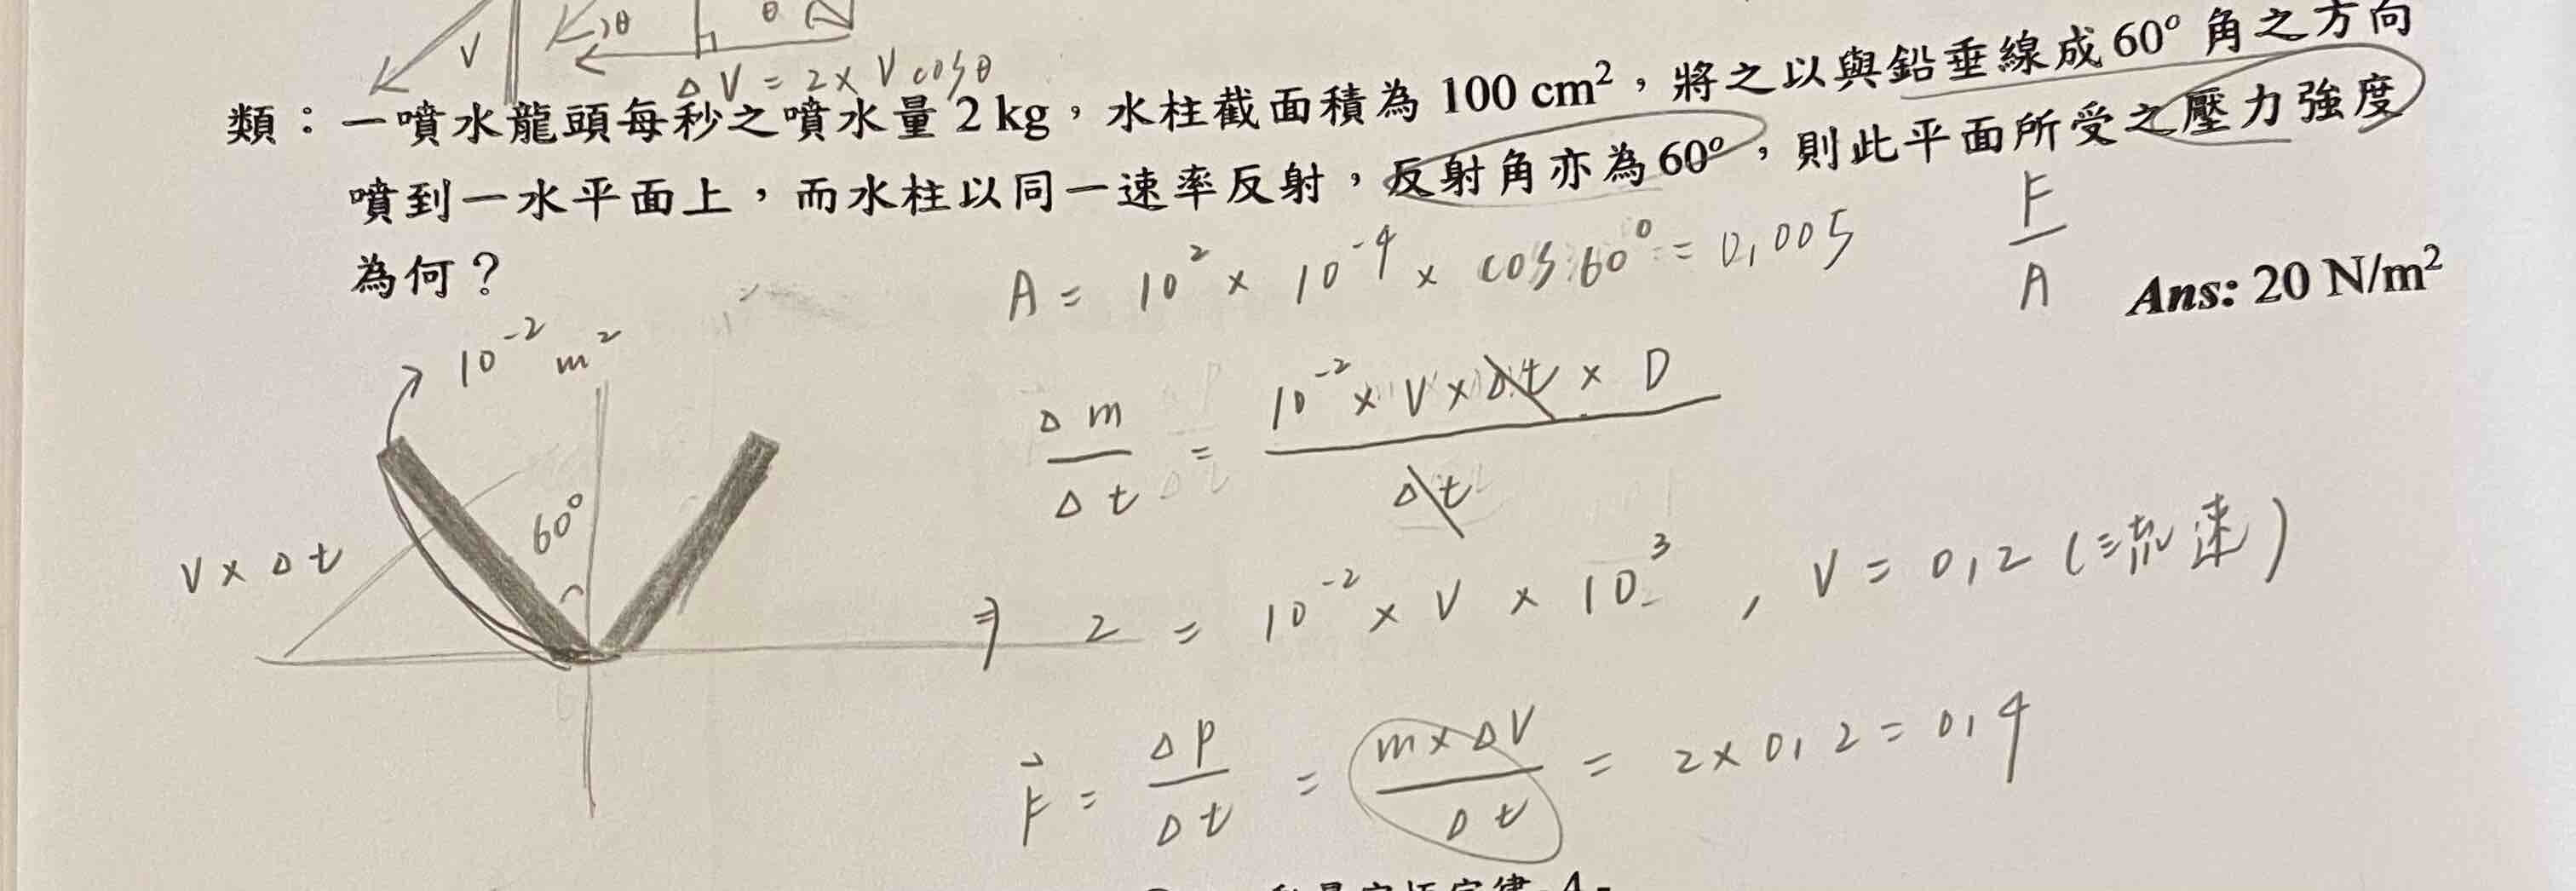 V
2θ
θ
ΔV = 2 × V cosθ
類：一噴水龍頭每秒之噴水量 2 kg，水柱截面積為 100 cm²，將之以與鉛垂線成 60° 角之方向
噴到一水平面上，而水柱以同一速率反射，反射角亦為 60°，則此平面所受之壓力強度
為何？
A = 10² × 10⁻⁴ × cos 60° = 0.005
F/A
Ans: 20 N/m²
10⁻² m²
Δm/Δt = (10⁻² × V × Δt × D)/Δt
60°
V × Δt
⇒ 2 = 10⁻² × V × 10³ , V = 0.2 (流速)
F⃗ = ΔP/Δt = (m × ΔV)/Δt = 2 × 0.2 = 0.4